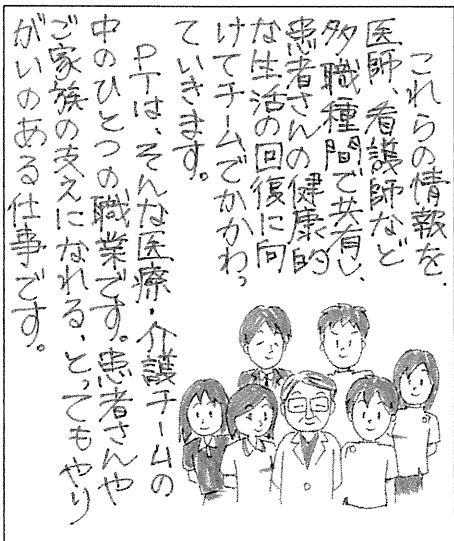 これらの情報を、
医師、看護師など
多職種間で共有し、
患者さんの健康的
な生活の回復に向
けてチームでかかわっ
ていきます。
PTは、そんな医療・介護チームの
中のひとつの職業です。患者さんや
ご家族の支えになれる、とってもやり
がいのある仕事です。